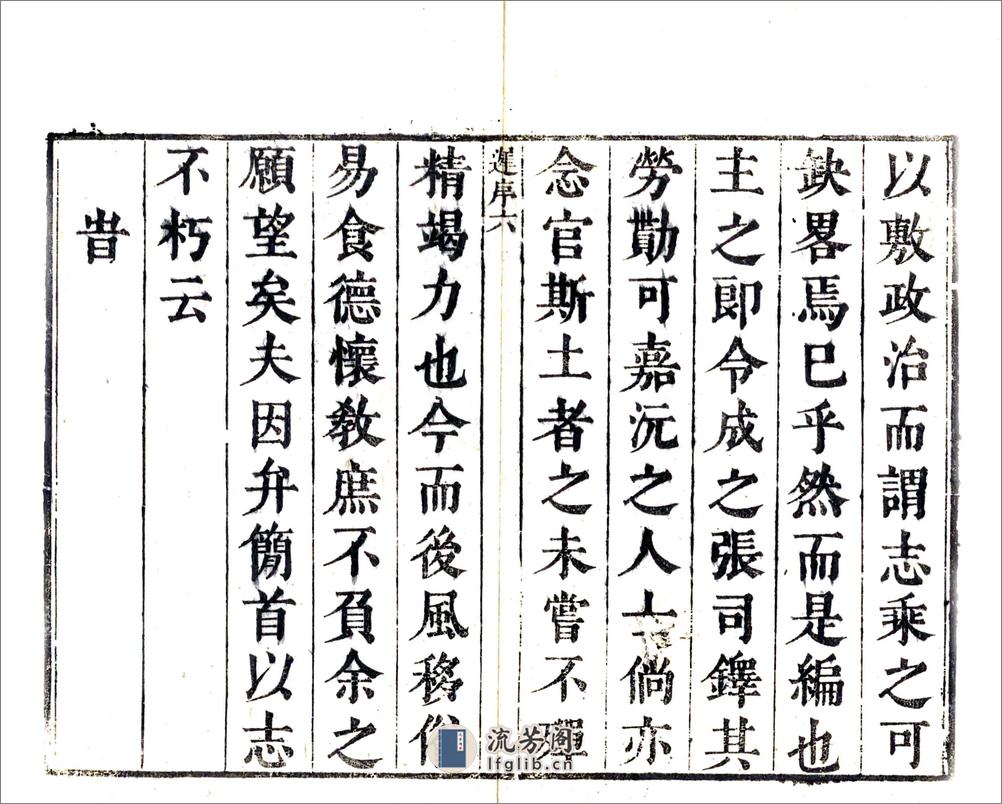 以敷政治而謂志乘之可
缺畧焉巳乎然而是編也
主之即令成之張司鐸其
勞勩可嘉沅之人士倘亦
念官斯土者之未嘗不殫
序六
精竭力也今而後風移俗
易食德懷敎庶不負余之
願望矣夫因弁簡首以志
不朽云
旹
流芳阁
lfglib.cn